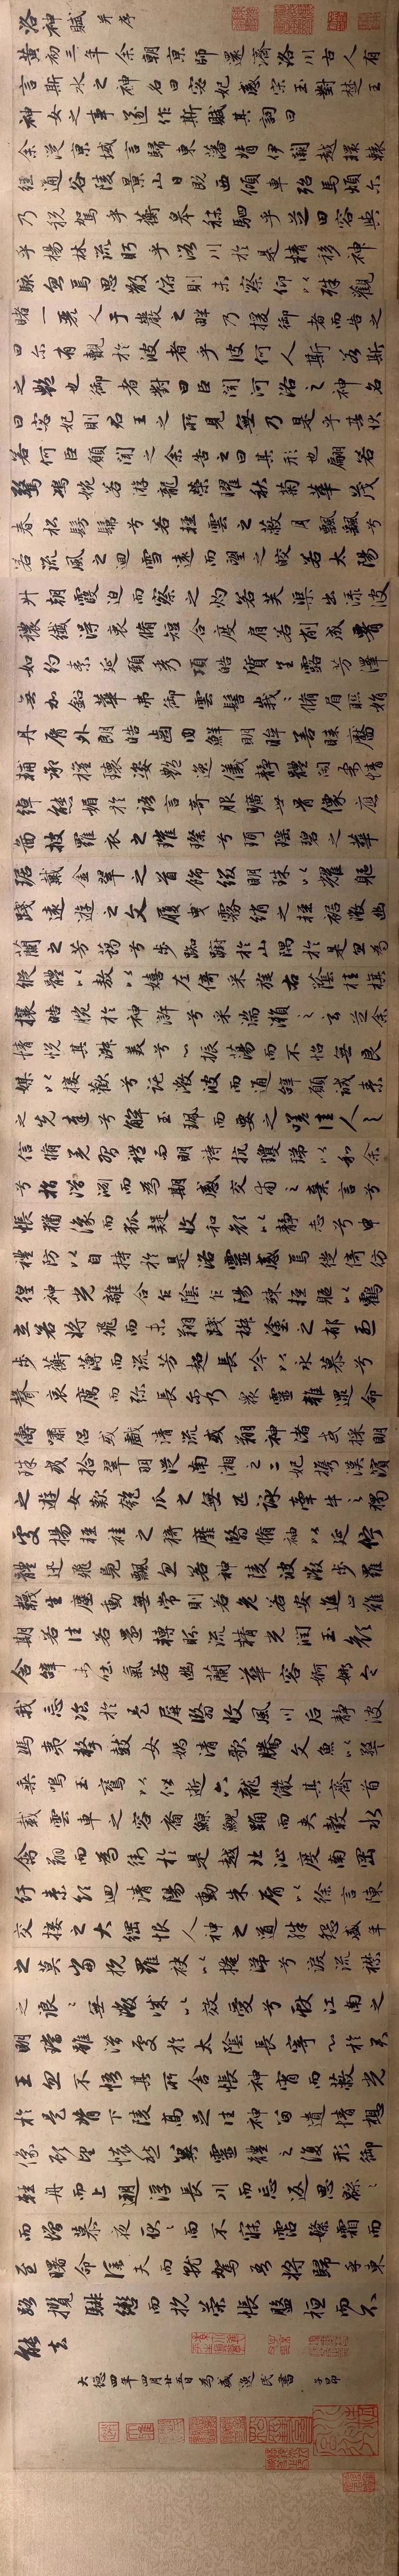 洛神賦 并序
黃初三年余朝京師還濟洛川古人有
言斯水之神名曰宓妃感宋玉對楚王
神女之事遂作斯賦其詞曰
余從京域言歸東藩背伊闕越轘轅
經通谷陵景山日既西傾車殆馬煩尔
乃稅駕乎蘅皋秣駟乎芝田容與
乎楊林流眄乎洛川於是精移神
駭忽焉思散俯則未察仰以殊觀
睹一麗人于巖之畔乃援御者而告之
曰尔有覿於彼者乎彼何人斯若斯
之艷也御者對曰臣聞河洛之神名
曰宓妃則君王之所見無乃是乎其狀
若何臣願聞之余告之曰其形也翩若
驚鴻婉若游龍榮曜秋菊華茂
春松髣髴兮若輕雲之蔽月飄颻兮
若流風之迴雪遠而望之皎若太陽
升朝霞迫而察之灼若芙渠出淥波
穠纖得衷脩短合度肩若削成腰
如約素延頸秀項皓質呈露芳澤
無加鉛華弗御雲髻峩〻脩眉聯娟
丹脣外朗皓齒內鮮明眸善睞靨
輔承權瓌姿艷逸儀靜體閑柔情
綽態媚於語言奇服曠世骨像應
圖披羅衣之璀璨兮珥瑤碧之華
琚戴金翠之首飾綴明珠以耀軀
踐遠遊之文履曳霧綃之輕裾微幽
蘭之芳藹兮步踟躕於山隅於是忽焉
縱體以敖以嬉左倚采旄右蔭桂旗
攘皓腕於神滸兮采湍瀨之玄芝余
情悅其淑美兮心振蕩而不怡無良
媒以接歡兮託微波而通辭願誠素
之先達兮解玉珮而要之嗟佳人之
信脩羌習禮而明詩抗瓊珶以和余
兮指潛淵而為期感交甫之棄言兮
悵猶豫而狐疑收和顏以靜志兮申
禮防以自持於是洛靈感焉徙倚彷
徨神光離合乍陰乍陽竦輕軀以鶴
立若將飛而未翔踐椒塗之郁烈
步蘅薄而流芳超長吟以永慕兮
聲哀厲而彌長尔乃眾靈雜遝命
儔嘯侶或戲清流或翔神渚或採明
珠或拾翠羽從南湘之二妃攜漢濱
之遊女歎匏瓜之無匹詠牽牛之獨
處揚輕袿之猗靡翳脩袖以延佇
體迅飛鳧飄忽若神陵波微步羅
襪生塵動無常則若危若安進止難
期若往若還轉眄流精光潤玉顏
含辭未吐氣若幽蘭華容婀娜令
我忘飡於是屏翳收風川后靜波
馮夷擊鼓女媧清歌騰文魚以警
乘鳴玉鸞以偕逝六龍儼其齊首
載雲車之容裔鯨鯢踊而夾轂水
禽翔而為衛於是越北沚度南岡
紆素領迴清陽動朱脣以徐言陳
交接之大綱恨人神之道殊怨盛年
之莫當抗羅袂以掩涕兮淚流襟
之浪〻無微情以效愛兮獻江南之
明璫雖潛處於太陰長寄心於君
王忽不悟其所舍悵神宵而蔽光
於是背下陵高足往神留遺情想
像顧望懷愁冀靈體之復形御
輕舟而上遡浮長川而忘返思緜〻
而增慕夜耿〻而不寐霑繁霜而
至曙命僕夫而就駕吾將歸乎東
路攬騑轡而抗策悵盤桓而不
能去
大德四年四月廿五日為盛逸民書 子昂